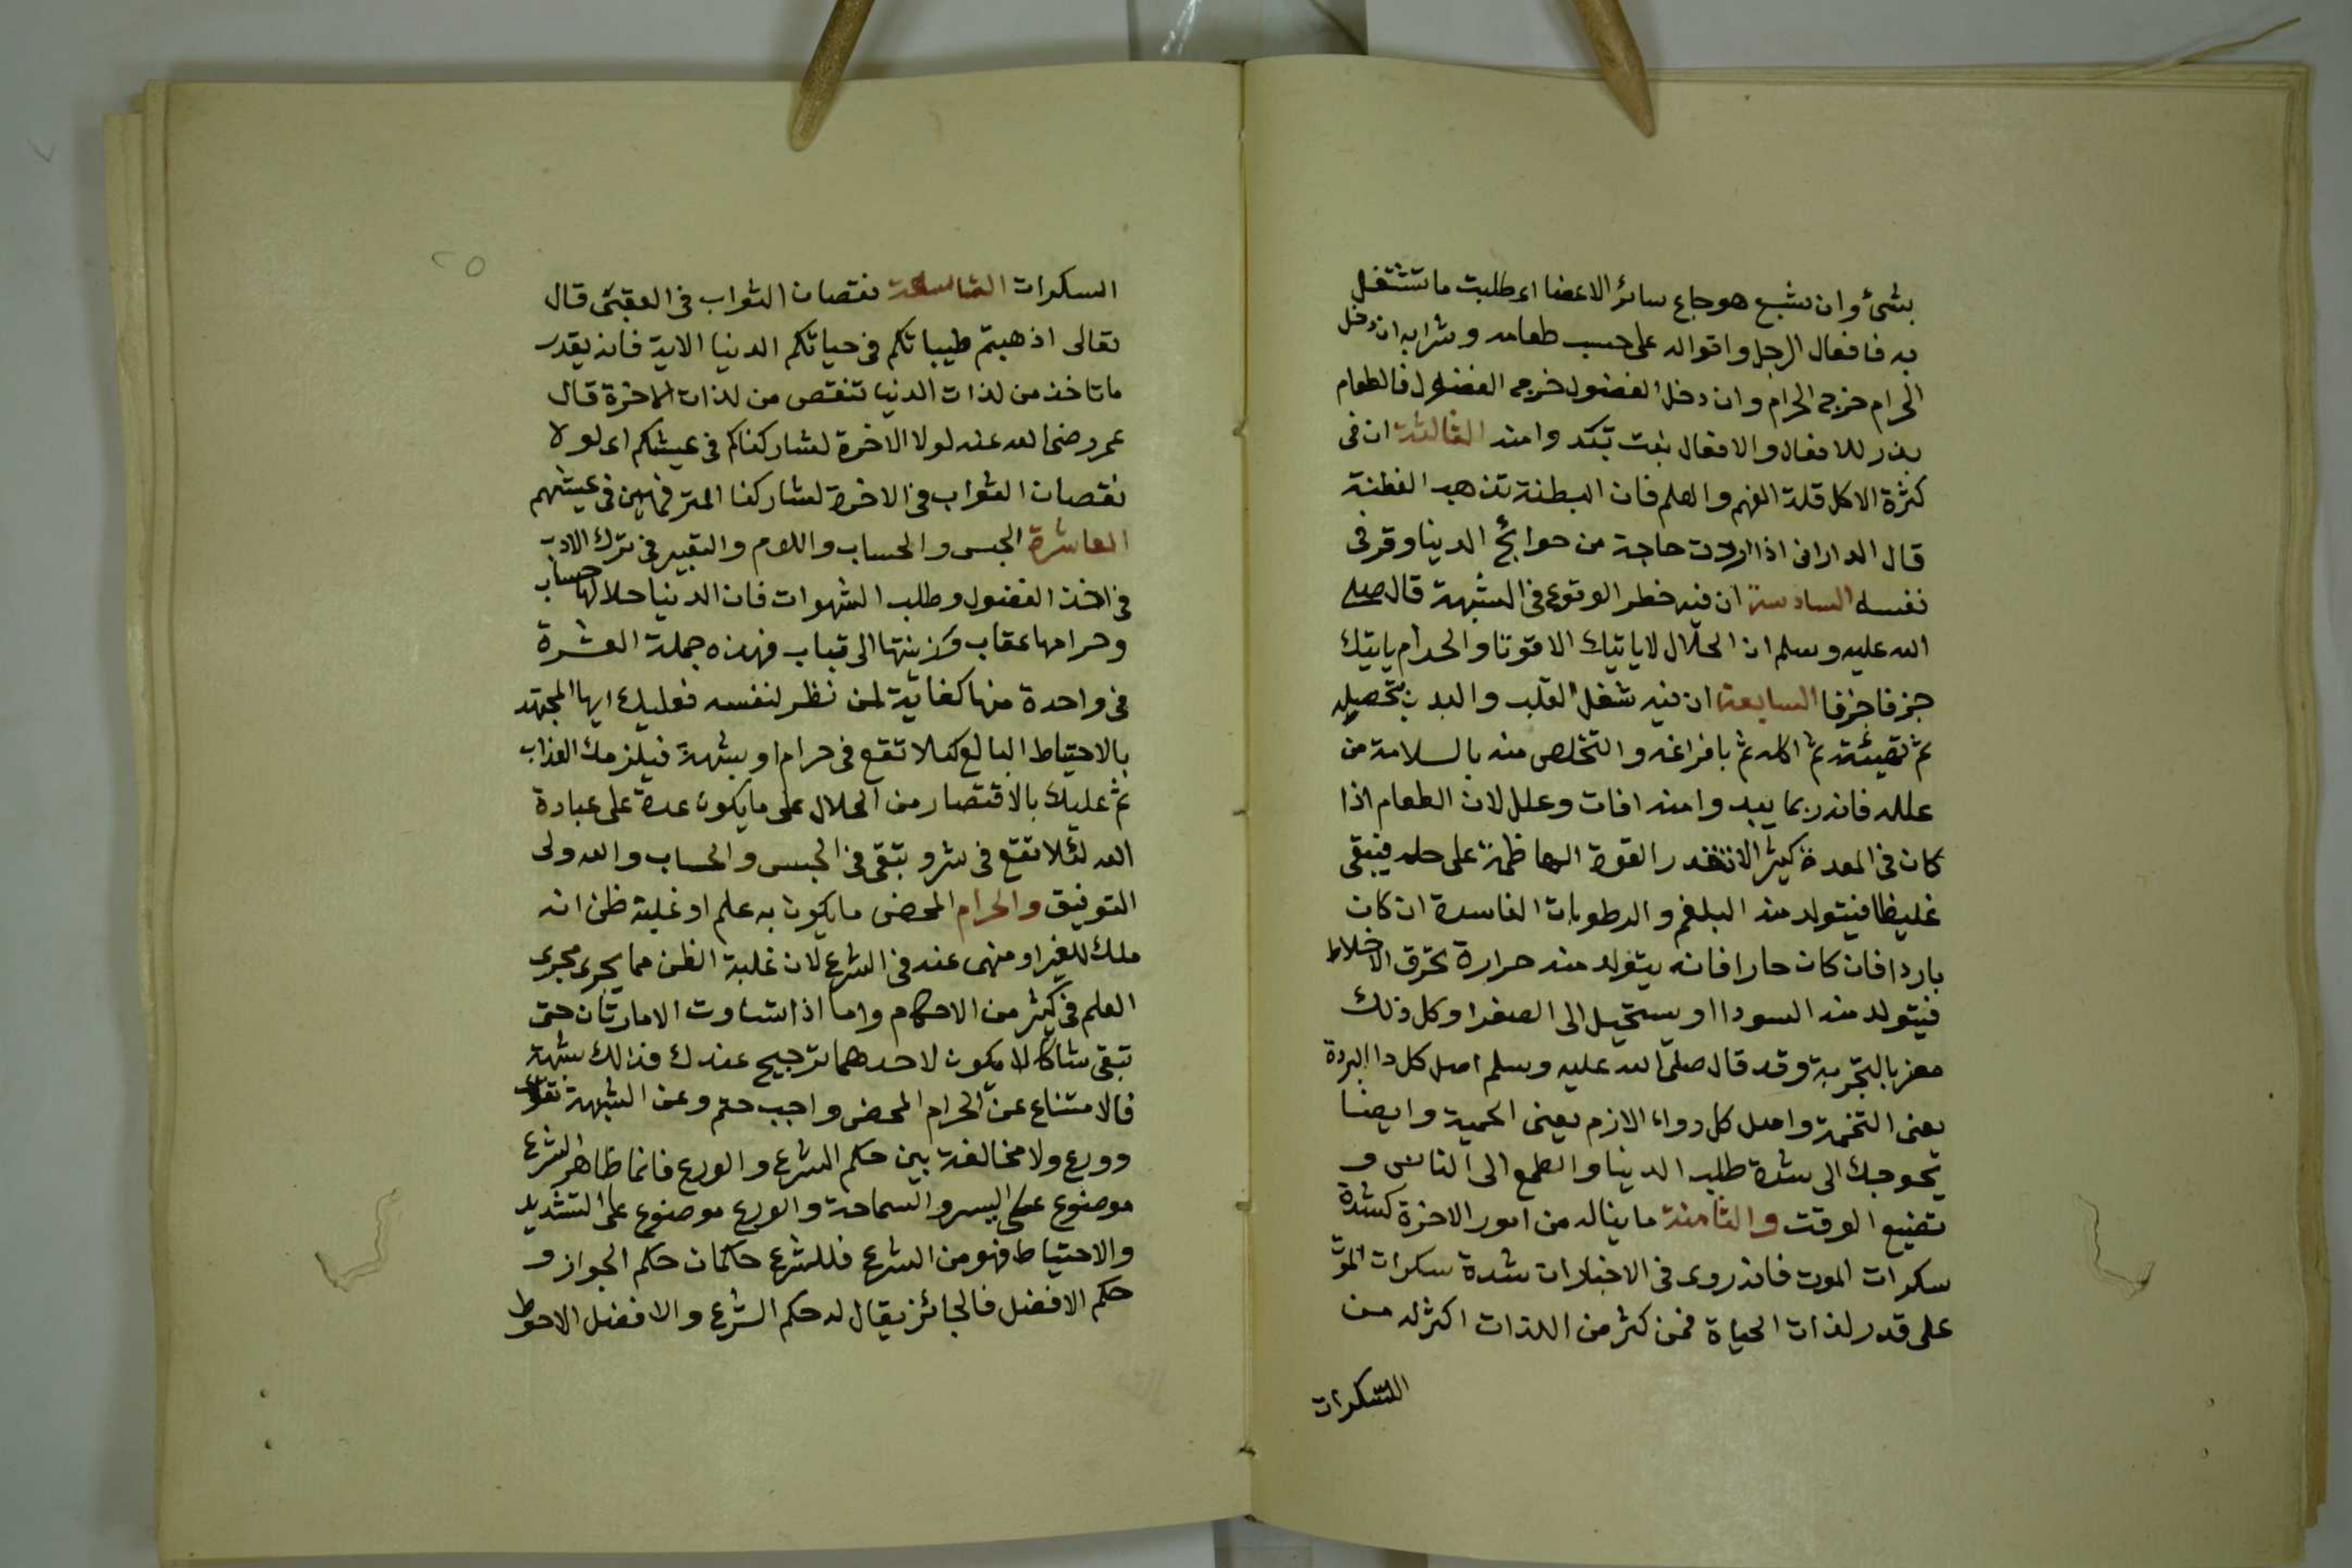 بشئ وان شبع هو جاع سائر الاعضا اى طلبت ما تشتغل
به فافعال الرجل واقواله على حسب طعامه وشرابه ان دخل
الحرام خرج الحرام وان دخل الفضول خرج الفضول فالطعام
بذر للافعال والافعال نبت تبد وامنه الثالثة ان فى
كثرة الاكل قلة الفهم والعلم فان البطنة تذهب الفطنة
قال الدارانى اذا اردت حاجة من حوائج الدينا وقر فى
نفسه السادسة ان فيه خطر الوقوع فى الشبهة قال صلى
الله عليه وسلم ان الحلال لاياتيك الا قوتا والحرام ياتيك
جزفا جزفا السابعة ان فيه شغل القلب والبدن بتحصيله
ثم تهيئته ثم اكله ثم بافراغه والتخلص منه بالسلامة من
علله فانه ربما يبد وامنه افات وعلل لان الطعام اذا
كان فى المعدة كثيرا لاتقدر القوة الهاظمة على حله فيبقى
غليظا فيتولد منه البلغم والرطوبات الفاسدة ان كان
باردا فان كان حارا فانه يتولد منه حرارة تحرق الاخلاط
فيتولد منه السودا او يستحيل الى الصفرا وكل ذلك
مضر بالتجربة وقد قال صلى الله عليه وسلم اصل كل دا البردة
يعنى التخمة واصل كل دواء الازم يعنى الحمية وايضا
تحوجك الى شدة طلب الدينا والطمع الى الناس و
تضيع الوقت والثامنة ما يناله من امور الاخرة كشدة
سكرات الموت فانه روى فى الاخبار ان شدة سكرات الموت
على قدر لذات الحياة فمن كثر من اللذات اكثر له من
السكرات
٢٥
السكرات التاسعة نقصان الثواب فى العقبى قال
تعالى اذهبتم طيباتكم فى حياتكم الدنيا الاية فانه بقدر
ما تاخذ من لذات الدنيا تنقص من لذات الاخرة قال
عمر رضى الله عنه لولا الاخرة لشاركناكم فى عيشكم اى لولا
نقصان الثواب فى الاخرة لشاركنا المترفهين فى عيشهم
العاشرة الحبس والحساب واللوم والتعيير فى ترك الادب
فى اخذ الفضول وطلب الشهوات فان الدنيا حلالها حساب
وحرامها عقاب وزينتها الى تباب فهذه جملة العشرة
فى واحدة منها كفاية لمن نظر لنفسه فعليك ايها المجتهد
بالاحتياط البالغ كيلا تقع فى حرام او شبهة فيلزمك العذاب
ثم عليك بالاقتصار من الحلال على ما يكون عدة على عبادة
الله لئلا تقع فى شر وتبقى فى الحبس والحساب والله ولى
التوفيق والحرام المحض ما يكون به علم او غلبة ظن انه
ملك للغير او منهى عنه فى الشرع لان غلبة الظن مما يجرى مجرى
العلم فى كثير من الاحكام واما اذا تساوت الامارتان حتى
تبقى شاكا لا يكون لاحدهما ترجيح عندك فذلك شبهة
فالامتناع عن الحرام المحض واجب حتم وعن الشبهة تقوى
وورع ولا مخالفة بين حكم الشرع والورع فانما ظاهر الشرع
موضوع على اليسر والسماحة والورع موضوع على التشديد
والاحتياط فهو من الشرع فللشرع حكمان حكم الجواز و
حكم الافضل فالجائز يقال له حكم الشرع والافضل الاحوط